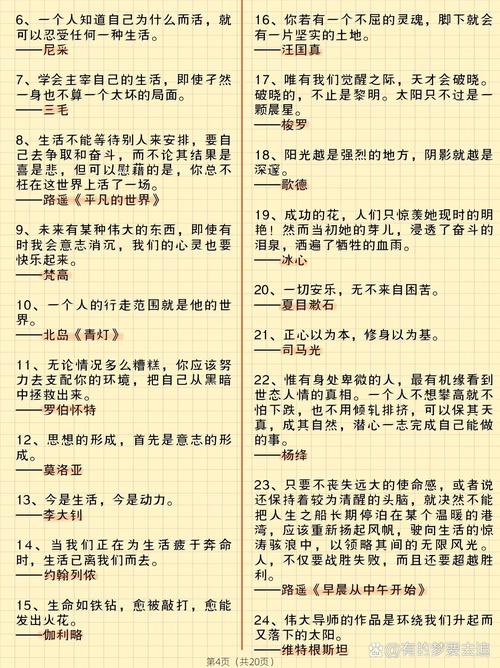 6、一个人知道自己为什么而活，就
可以忍受任何一种生活。
——尼采
7、学会主宰自己的生活，即使孑然
一身也不算一个太坏的局面。
——三毛
8、生活不能等待别人来安排，要自
己去争取和奋斗，而不论其结果是
喜是悲，但可以慰藉的是，你总不
枉在这世界上活了一场。
——路遥《平凡的世界》
9、未来有某种伟大的东西，即使有
时我会意志消沉，我们的心灵也要
快乐起来。
——梵高
10、一个人的行走范围就是他的世
界。
——北岛《青灯》
11、无论情况多么糟糕，你应该努
力去支配你的环境，把自己从黑暗
中拯救出来。
——罗伯怀特
12、思想的形成，首先是意志的形
成。
——莫洛亚
13、今是生活，今是动力。
——李大钊
14、当我们正在为生活疲于奔命
时，生活已离我们而去。
——约翰列侬
15、生命如铁钻，愈被敲打，愈能
发出火花。
——伽利略
16、你若有一个不屈的灵魂，脚下就会
有一片坚实的土地。
——汪国真
17、唯有我们觉醒之际，天才会破晓。
破晓的，不止是黎明。太阳只不过是一
颗晨星。
——梭罗
18、阳光越是强烈的地方，阴影就越是
深邃。
——歌德
19、成功的花，人们只惊羡她现时的明
艳！然而当初她的芽儿，浸透了奋斗的
泪泉，洒遍了牺牲的血雨。
——冰心
20、一切安乐，无不来自困苦。
——夏目漱石
21、正心以为本，修身以为基。
——司马光
22、惟有身处卑微的人，最有机缘看到
世态人情的真相。一个人不想攀高就不
怕下跌，也不用倾轧排挤，可以保其天
真，成其自然，潜心一志完成自己能做
的事。
——杨绛
23、只要不丧失远大的使命感，或者说
还保持着较为清醒的头脑，就决然不能
把人生之船长期停泊在某个温暖的港
湾，应该重新扬起风帆，驶向生活的惊
涛骇浪中，以领略其间的无限风光。人
，不仅要战胜失败，而且还要超越胜
利。
——路遥《早晨从中午开始》
24、伟大导师的作品是环绕我们升起而
又落下的太阳。
——维特根斯坦
第4页（共20页）